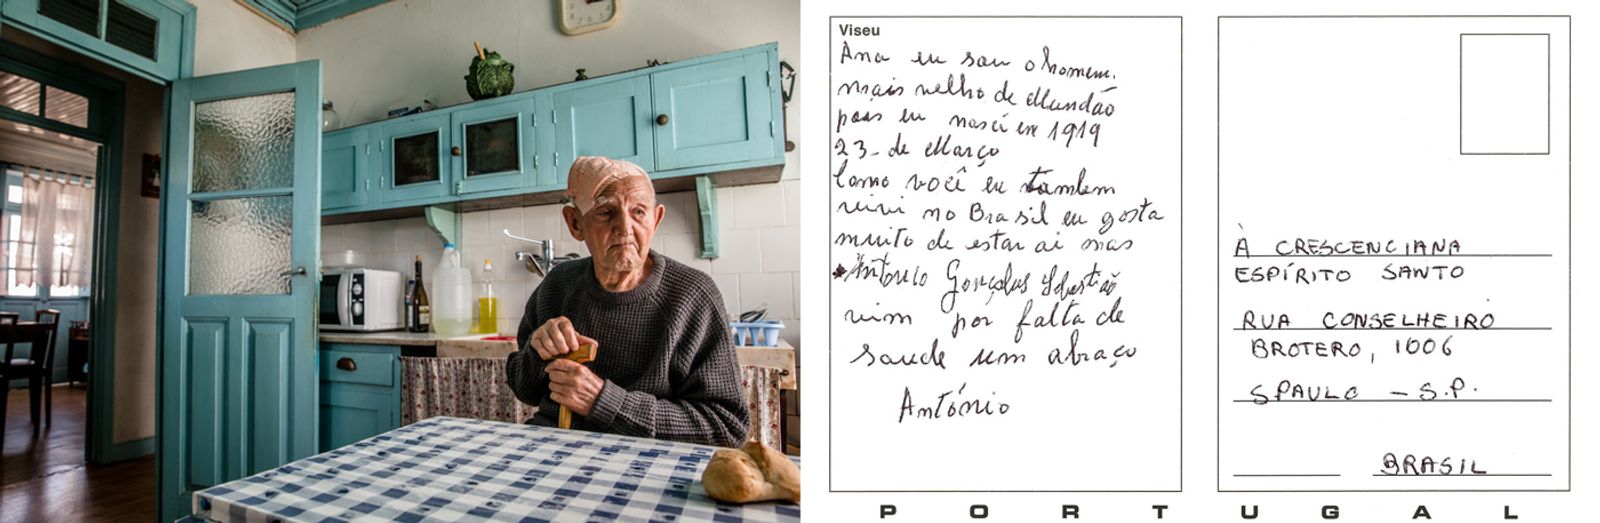 Viseu
Ana eu sou o homem.
mais velho de Mundão
pois eu nasci em 1919
23 - de Março
Como você eu tambem
vivi no Brasil eu gosta
muito de estar ai mas
António Gonçalves Sebastião
vim por falta de
saude um abraço
António
À CRESCENCIANA
ESPÍRITO SANTO
RUA CONSELHEIRO
BROTERO, 1006
SPAULO - S.P.
BRASIL
PORTUGAL